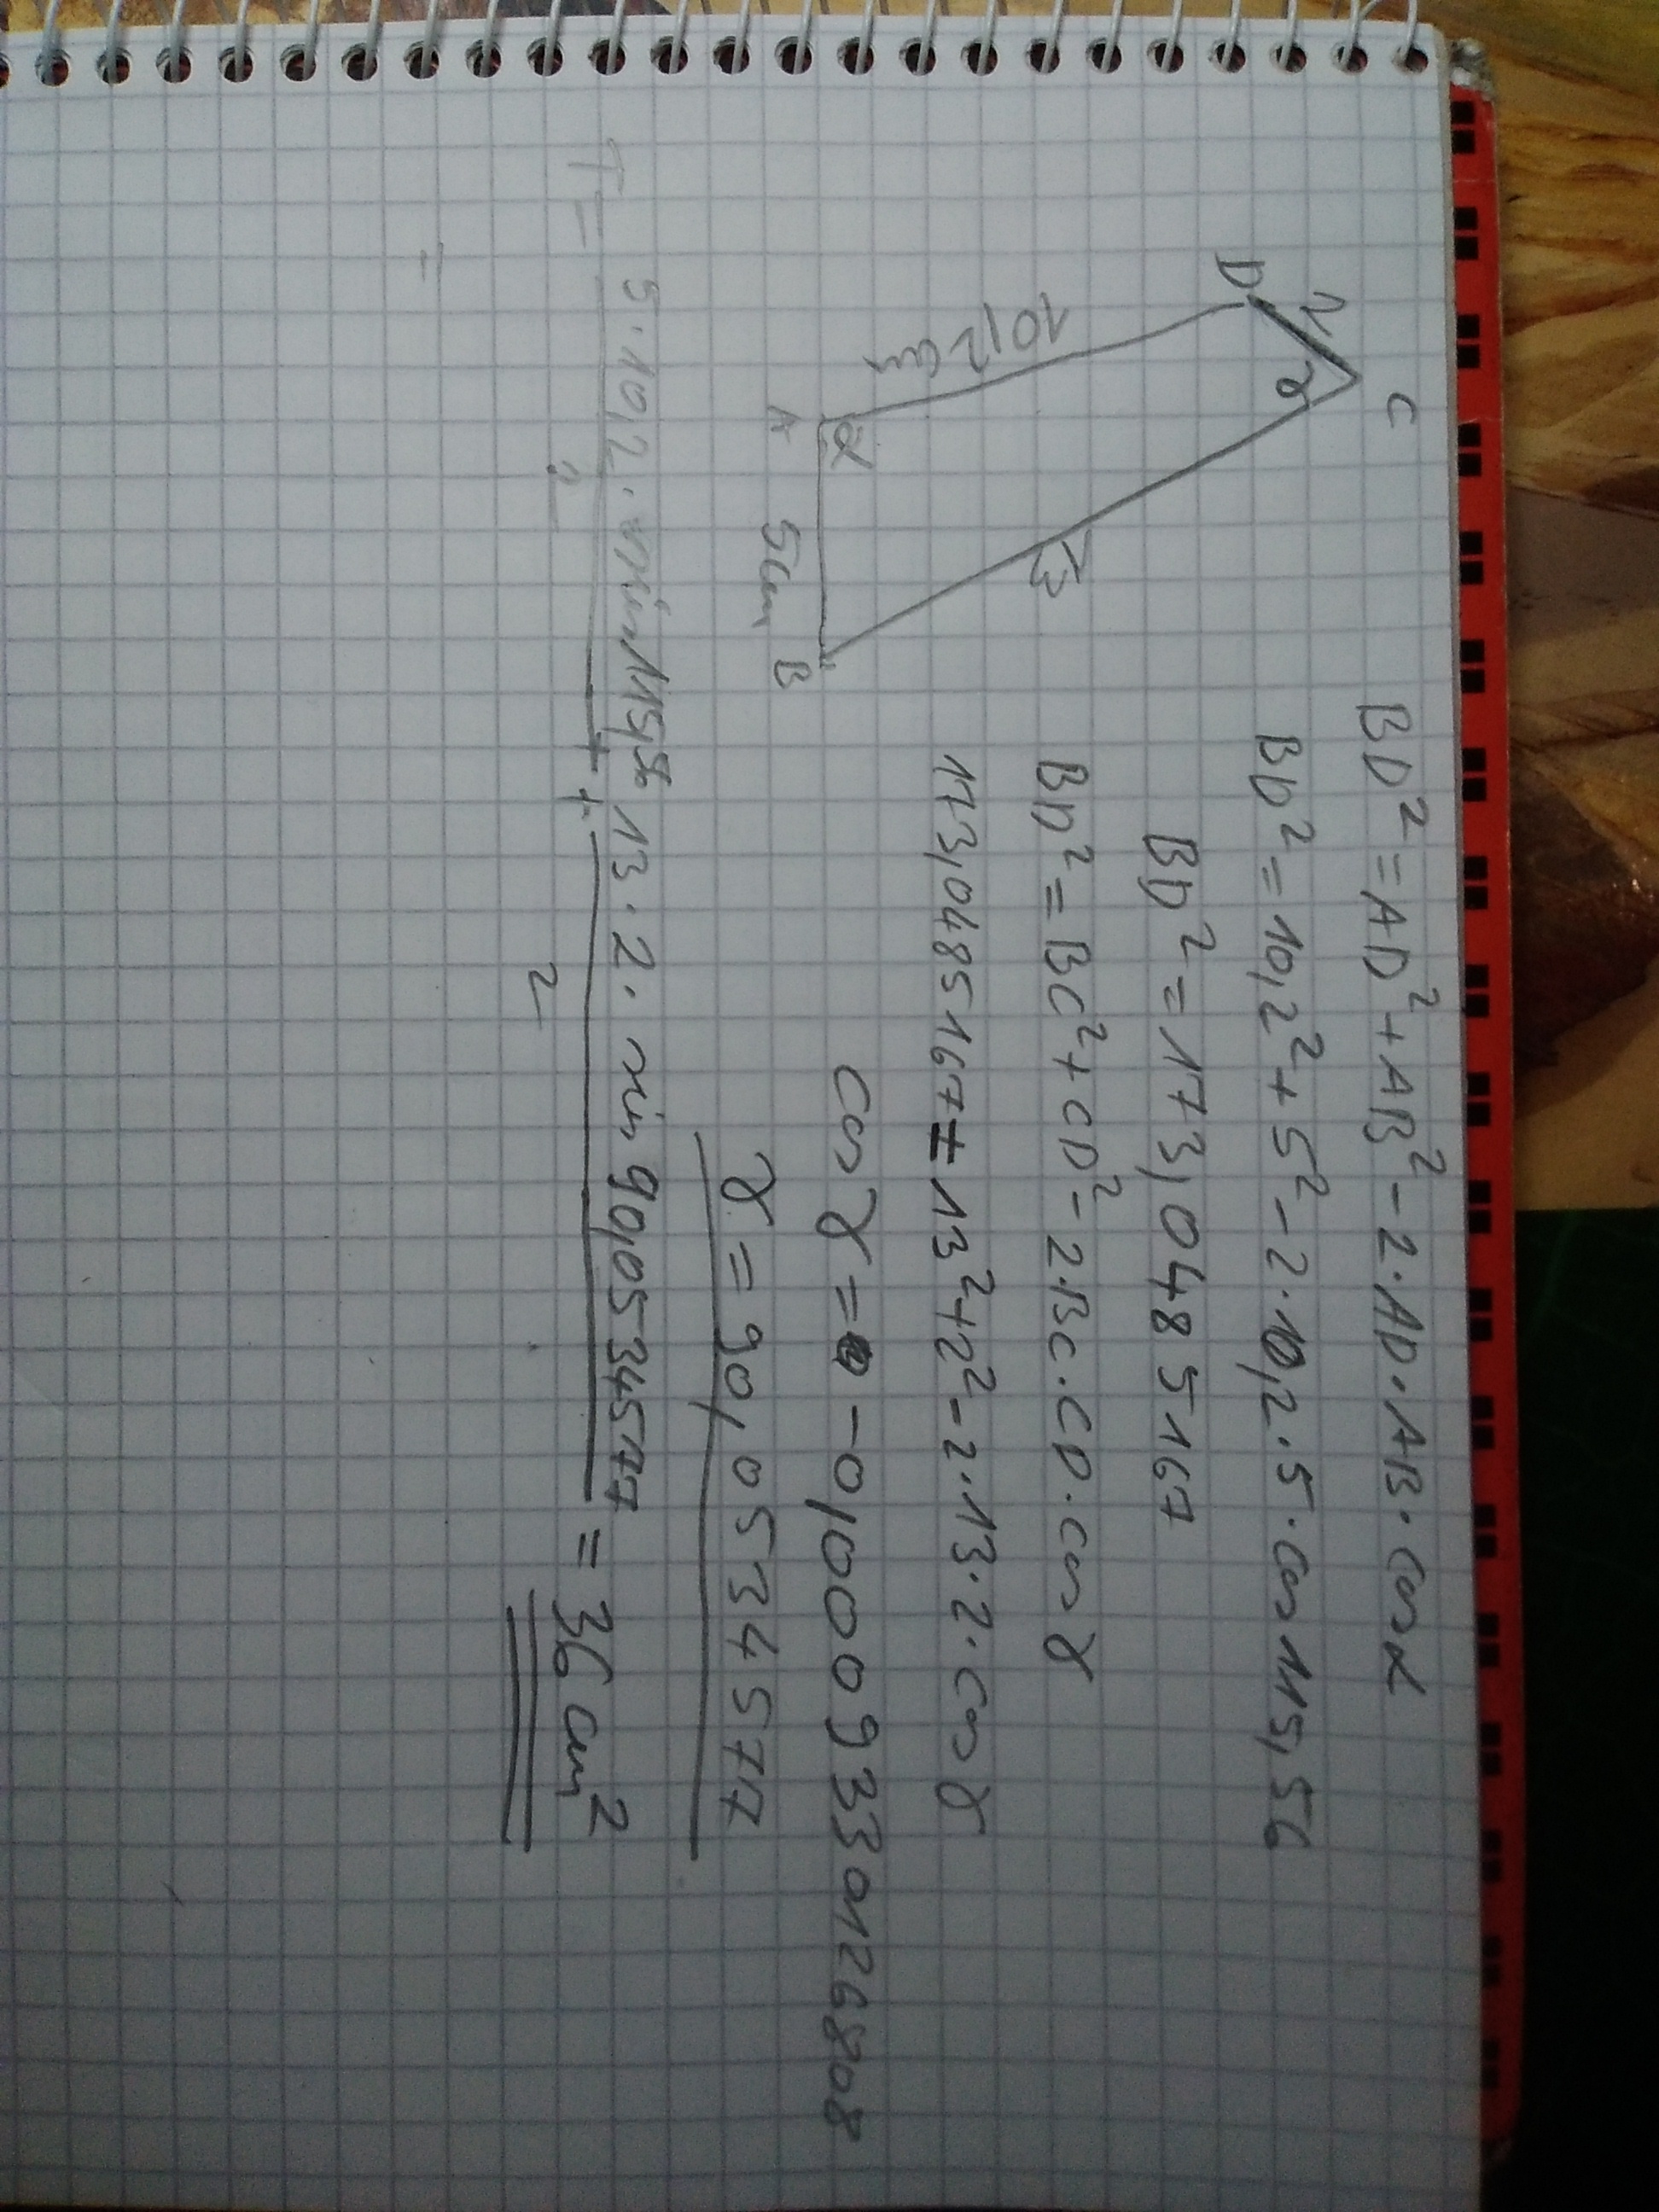 BD² = AD² + AB² - 2·AD·AB·cos α
BD² = 10,2² + 5² - 2·10,2·5·cos 115,56
BD² = 173,0485167
BD² = BC² + CD² - 2·BC·CD·cos γ
173,0485167 = 13² + 2² - 2·13·2·cos γ
cos γ = -0,0009330126808
γ = 90,0534577
C
D
2
γ
10,2 cm
13
α
A
5cm
B
T = 5·10,2·sin 115,56 / 2 + 13·2·sin 90,0534577 / 2 = 36 cm²
=